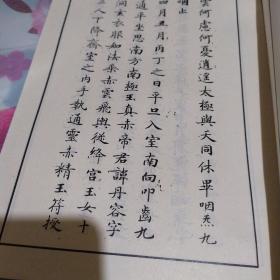 雲何慮何憂逍遥太極與天同休畢咽炁九
咽止
四月五月丙丁之日平旦入室南向叩齒九
通平坐思南方南極玉真赤帝君諱丹容字
洞玄衣服如法乘赤雲飛輿從絳宮玉女十
二人下降齋室之内手執通靈赤精玉符授